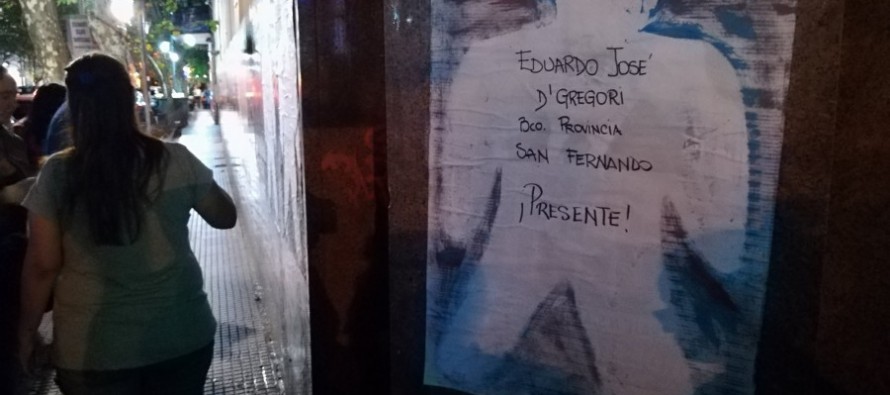 EDUARDO JOSÉ
D'GREGORI
BCO. PROVINCIA
SAN FERNANDO
¡PRESENTE!